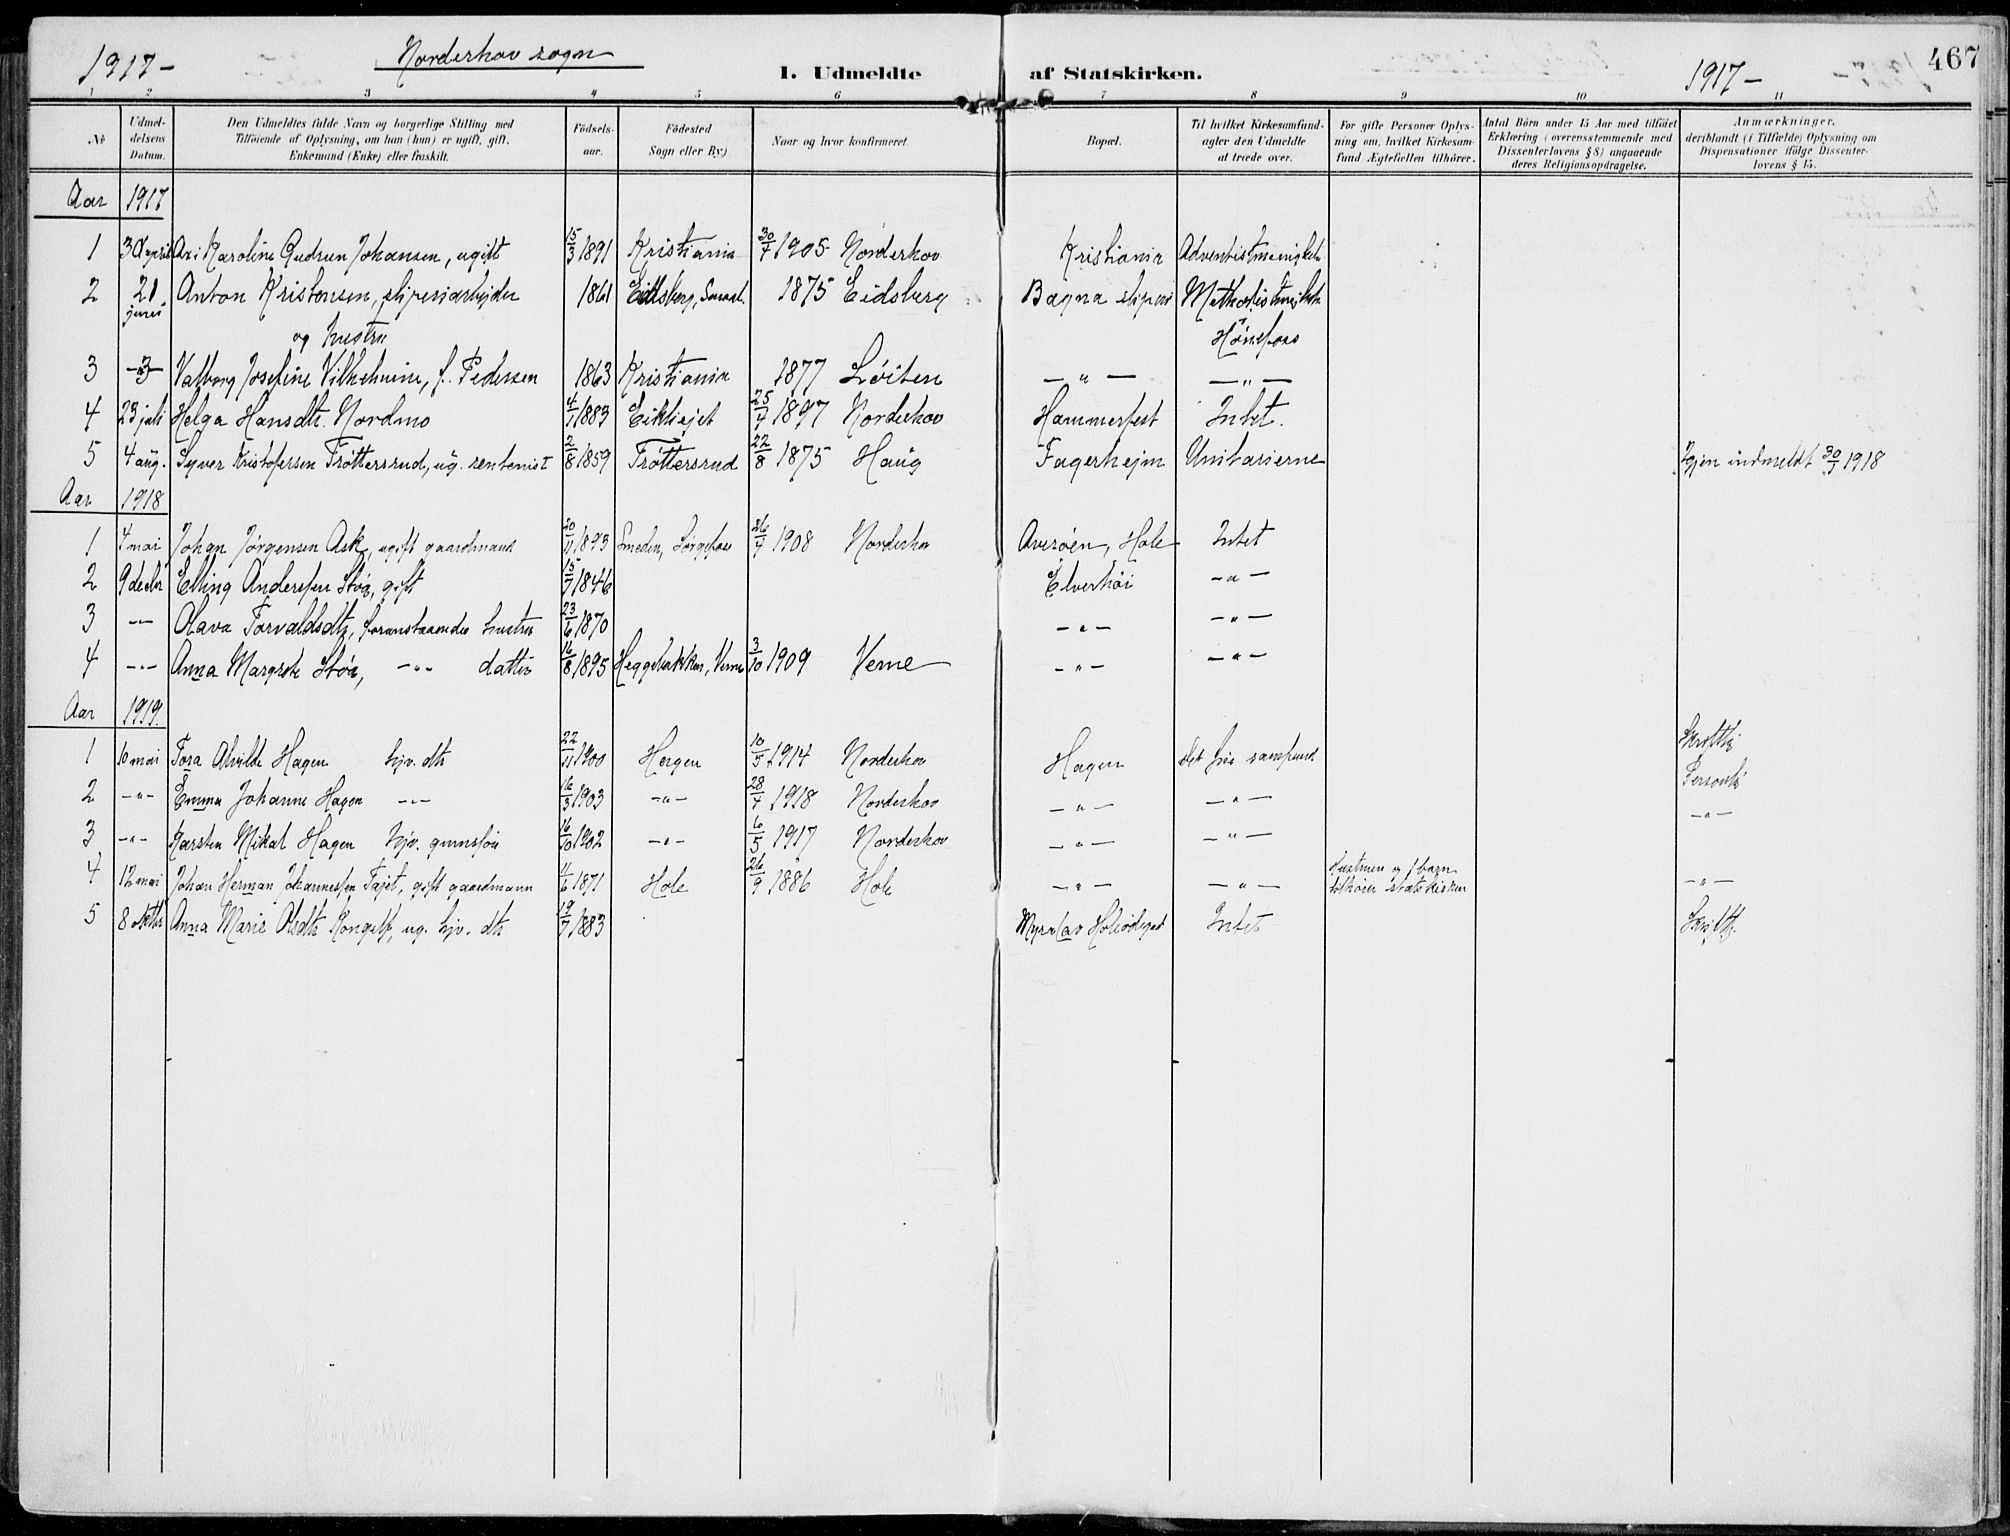 1917- Norderhov sogn I. Udmeldte af Statskirken. 1917- 467
1 2 3 4 5 6 7 8 9 10 11
No
Udmel-
delsens
Datum.
Den Udmeldtes fulde Navn og borgerlige Stilling med
Tilföiende af Oplysning, om han (hun) er ugift, gift,
Enkemand (Enke) eller fraskilt.
Födsels-
aar.
Födested
Sogn eller By.)
Naar og hvor konfirmeret.
Bopæl.
Til hvilket Kirkesamfund-
agter den Udmeldte
at træde over.
For gifte Personer Oplys-
ning om, hvilket Kirkesam-
fund Ægtefællen tilhörer.
Antal Börn under 15 Aar med tilföiet
Erklæring (overensstemmende med
Dissenterlovens § 8) angaaende
deres Religionsopdragelse.
Anmærkninger,
deriblandt (i Tilfælde) Oplysning om
Dispensationer ifölge Dissenter-
lovens § 15.
Aar 1917
1 3 april Karoline Gudrun Johansen, ugift 15/3 1891 Kristiania 30/4 1905 Norderhov Kristiania
2 21 juni Anton Kristensen, sliperiarbejder 1861 Eidsberg, 1875 Eidsberg Bagna sliperi
og hustru Hönefoss
3 -"- Valborg Josefine Vilhelmine, f. Pedersen 1863 Kristiania 1877 Löiten -"- -"-
4 23 juli Helga Hansdtr. Nordmo 4/1 1883 Eikliejet 25/4 1897 Norderhov Hammerfest Intet.
5 4 aug. Syver Kristofersen Tröttersrud, ug. rentenist 2/8 1859 Tröttersrud 22/8 1875 Haug Fagerhejm Unitarierne Igjen indmeldt 30/1 1918
Aar 1918
1 4 mai Johan Jörgensen Ask, ugift gaardmand 20/11 1893 Smeden, 26/4 1908 Norderhov Averöen, Hole Intet
2 9 decbr Elling Andersen Stöa, gift 15/7 1846 Elverhöi -"-
3 -"- Olava Torvaldsdtr, foranstaaendes hustru 23/6 1870 -"- -"-
4 -"- Anna Margrete Stöa, -"- datter 16/8 1895 Heggebakken, Verne 3/10 1909 Verne -"- -"-
Aar 1919.
1 10 mai Tora Alvilde Hagen hjv. dtr 22/11 1900 Hagen 10/5 1914 Norderhov Hagen Det frie samfund
2 -"- Emma Johanne Hagen -"- 16/3 1903 -"- 28/4 1918 Norderhov -"- -"-
3 -"- Karsten Mikal Hagen hjv. 16/10 1902 -"- 6/5 1917 Norderhov -"- -"- -"-
4 12 mai Johan Herman Johannessen Fajet, gift gaardmann 4/6 1871 Hole 26/9 1886 Hole -"- -"- Hustruen og 1 barn
tilhører statskirken -"-
5 8 oktbr Anna Marie Olsdtr Rongelf, ug. hjv. dtr 19/7 1883 Intet